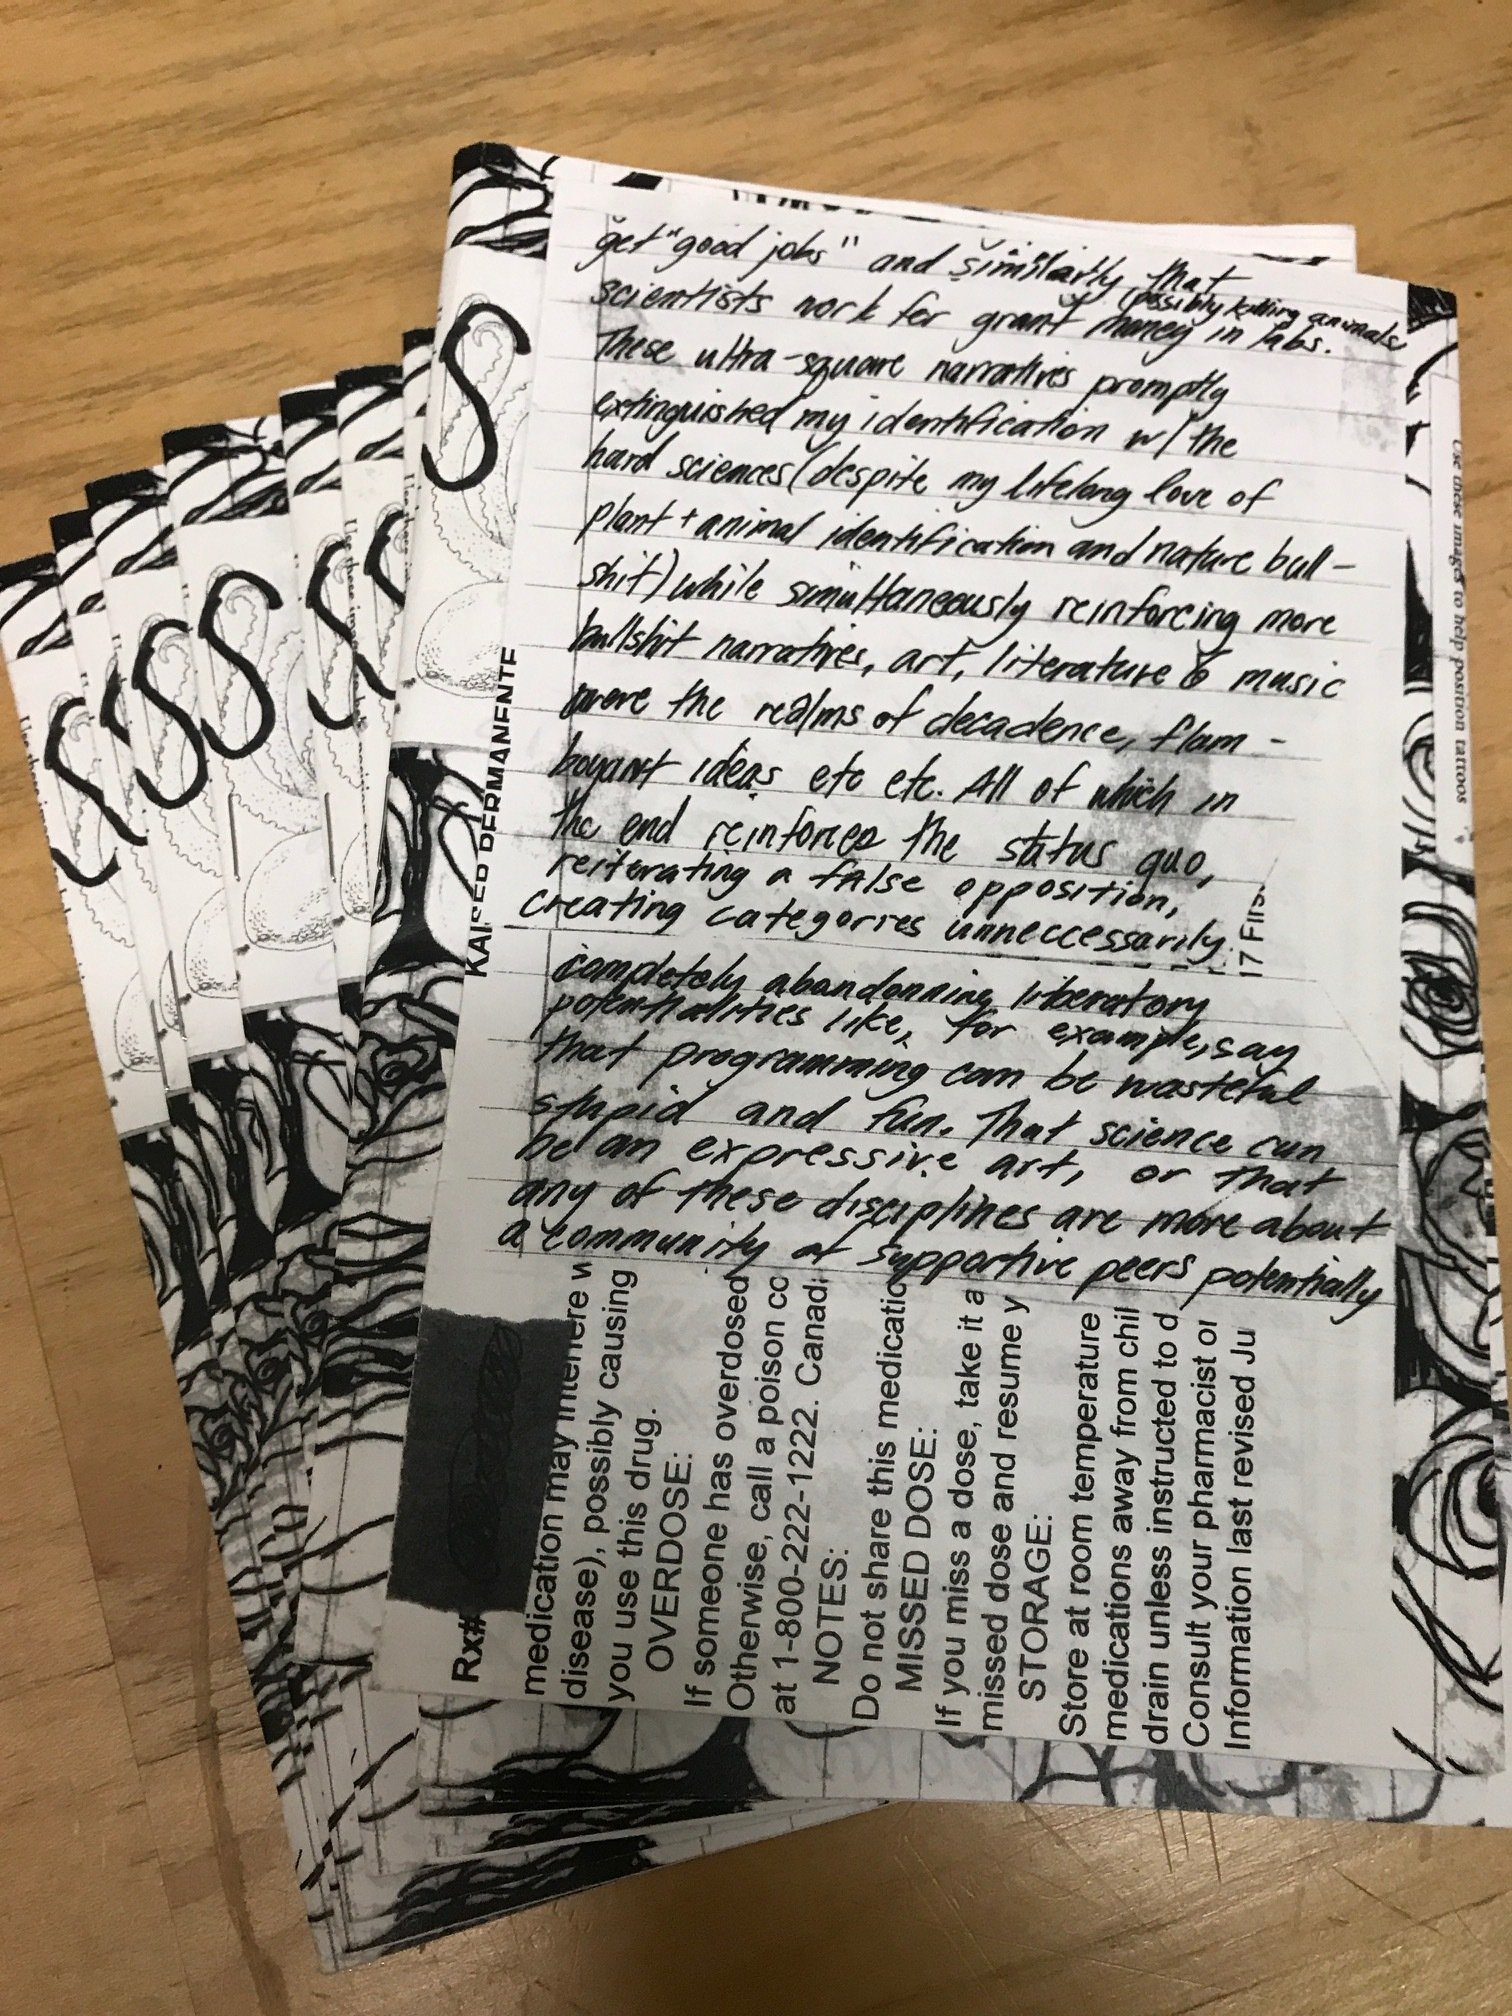 get "good jobs" and similarly, that
(possibly killing animals
scientists work for grant money in labs.
These ultra-square narratives promptly
extinguished my identification w/ the
hard sciences (despite my lifelong love of
plant + animal identification and nature bull-
shit) while simultaneously reinforcing more
bullshit narratives, art, literature & music
were the realms of decadence, flam-
boyant ideas etc etc. All of which in
the end reinforces the status quo,
reiterating a false opposition,
creating categories unneccessarily.
completely abandonning liberatory
potentialities like, for example, say
that programming can be wasteful
stupid and fun. That science can
be an expressive art, or that
any of these disciplines are more about
a community of supportive peers potentially
KAISER PERMANENTE
Rx#
medication may interfere w
disease), possibly causing
you use this drug.
OVERDOSE:
If someone has overdosed
Otherwise, call a poison co
at 1-800-222-1222. Canadi
NOTES:
Do not share this medicatio
MISSED DOSE:
If you miss a dose, take it a
missed dose and resume y
STORAGE:
Store at room temperature
medications away from chil
drain unless instructed to d
Consult your pharmacist or
Information last revised Ju
17 Firs
Use these images to help position tattoos
S
S
S
S